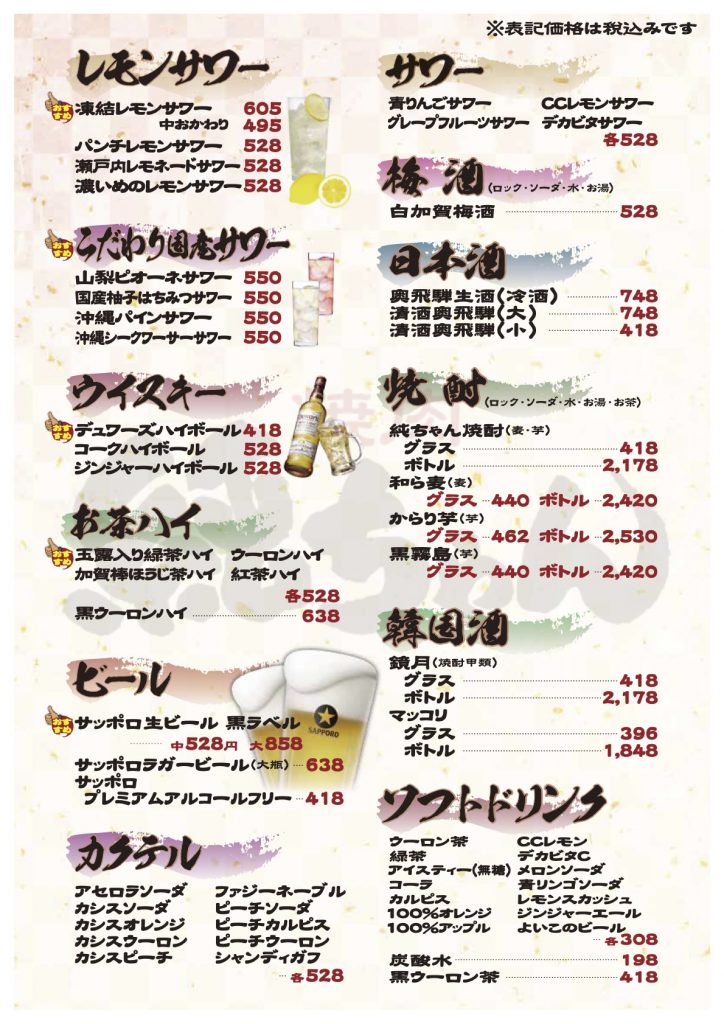 ※表記価格は税込みです
レモンサワー
おすすめ
凍結レモンサワー 605
中おかわり 495
パンチレモンサワー 528
瀬戸内レモネードサワー 528
濃いめのレモンサワー 528
こだわり国産サワー
おすすめ
山梨ピオーネサワー 550
国産柚子はちみつサワー 550
沖縄パインサワー 550
沖縄シークワーサーサワー 550
ウイスキー
おすすめ
デュワーズハイボール 418
コークハイボール 528
ジンジャーハイボール 528
お茶ハイ
おすすめ
玉露入り緑茶ハイ ウーロンハイ
加賀棒ほうじ茶ハイ 紅茶ハイ
各528
黒ウーロンハイ 638
ビール
おすすめ
サッポロ生ビール 黒ラベル
中528円 大858
サッポロラガービール(大瓶) 638
サッポロ
プレミアムアルコールフリー 418
SAPPORO
カクテル
アセロラソーダ ファジーネーブル
カシスソーダ ピーチソーダ
カシスオレンジ ピーチカルピス
カシスウーロン ピーチウーロン
カシスピーチ シャンディガフ
各528
サワー
青りんごサワー CCレモンサワー
グレープフルーツサワー デカビタサワー
各528
梅酒(ロック・ソーダ・水・お湯)
白加賀梅酒 528
日本酒
奥飛騨生酒(冷酒) 748
清酒奥飛騨(大) 748
清酒奥飛騨(小) 418
焼酎(ロック・ソーダ・水・お湯・お茶)
純ちゃん焼酎(麦・芋)
グラス 418
ボトル 2,178
和ら麦(麦)
グラス 440 ボトル 2,420
からり芋(芋)
グラス 462 ボトル 2,530
黒霧島(芋)
グラス 440 ボトル 2,420
韓国酒
鏡月(焼酎甲類)
グラス 418
ボトル 2,178
マッコリ
グラス 396
ボトル 1,848
ソフトドリンク
ウーロン茶 CCレモン
緑茶 デカビタC
アイスティー(無糖) メロンソーダ
コーラ 青リンゴソーダ
カルピス レモンスカッシュ
100%オレンジ ジンジャーエール
100%アップル よいこのビール
各308
炭酸水 198
黒ウーロン茶 418